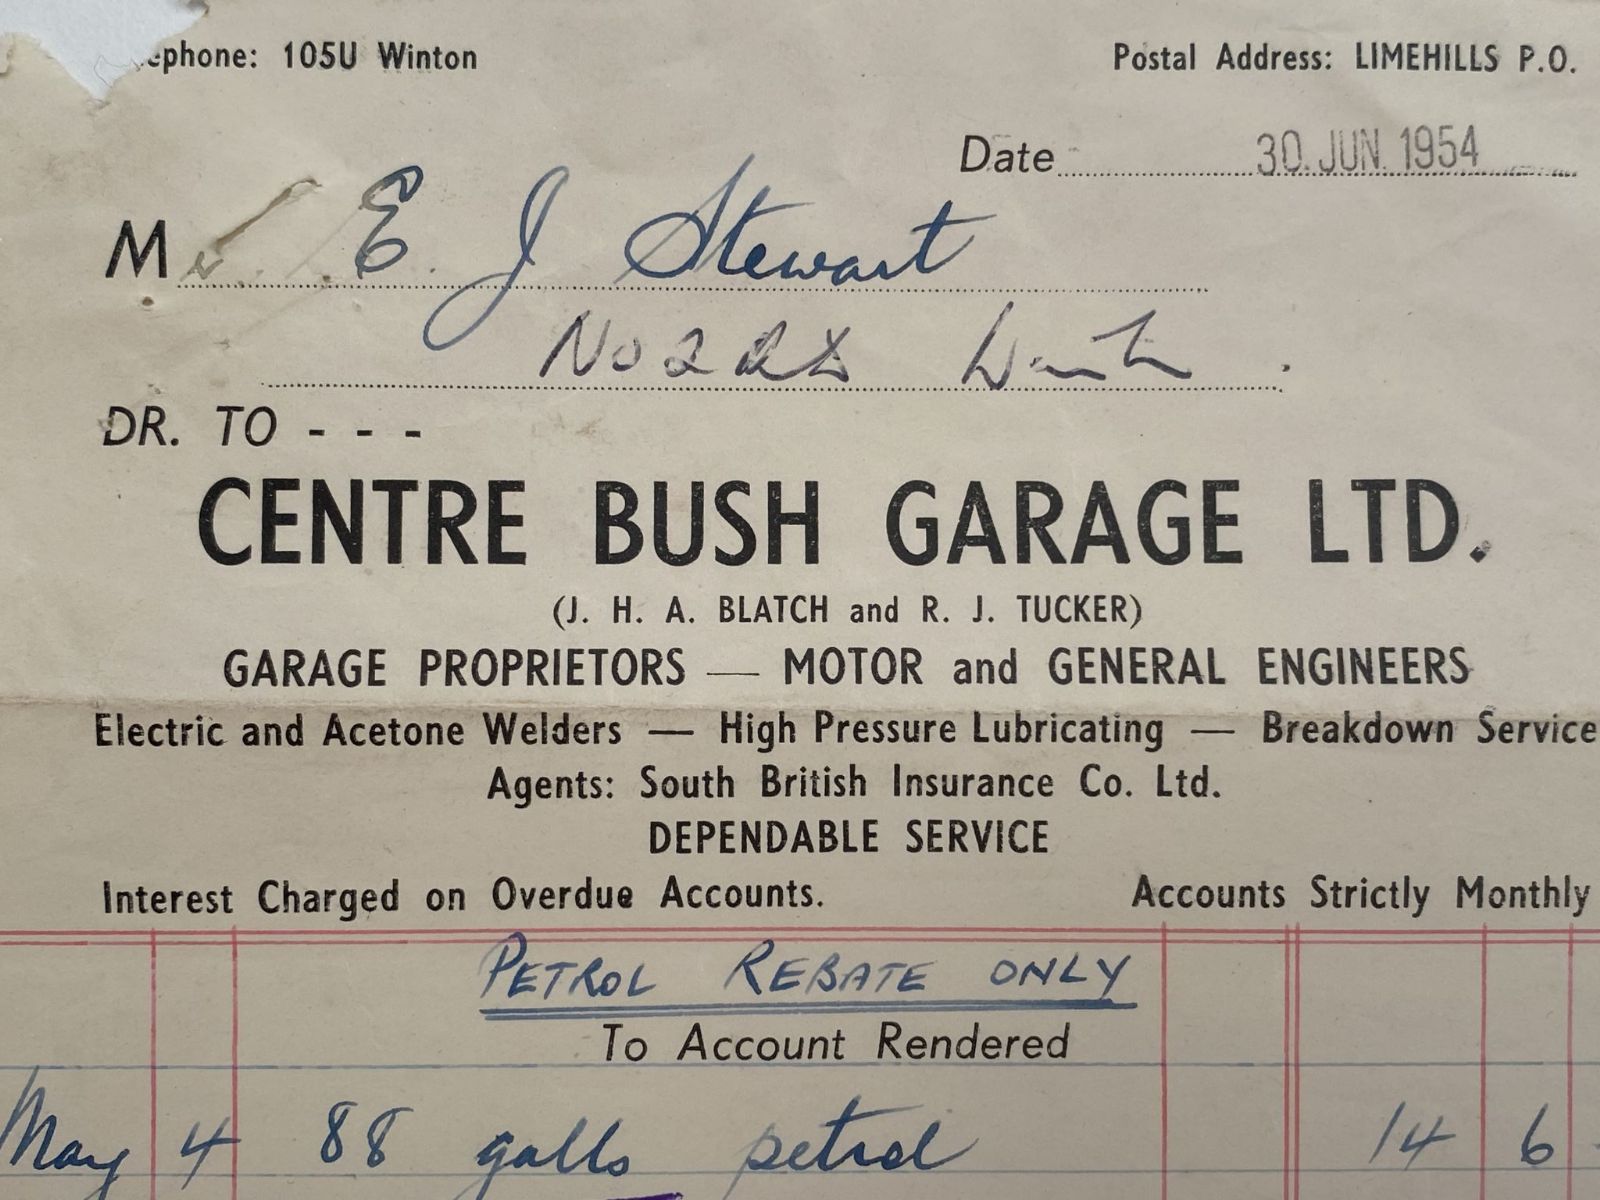 ephone: 105U Winton
Postal Address: LIMEHILLS P.O.
Date 30 JUN. 1954
Mr. E. J Stewart
No 2 RD Winton.
DR. TO - - -
CENTRE BUSH GARAGE LTD.
(J. H. A. BLATCH and R. J. TUCKER)
GARAGE PROPRIETORS — MOTOR and GENERAL ENGINEERS
Electric and Acetone Welders — High Pressure Lubricating — Breakdown Service
Agents: South British Insurance Co. Ltd.
DEPENDABLE SERVICE
Interest Charged on Overdue Accounts. Accounts Strictly Monthly
PETROL REBATE ONLY
To Account Rendered
May 4 88 galls petrol 14 6